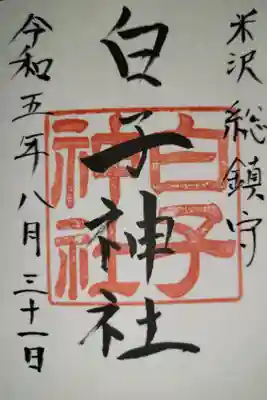 米沢総鎮守
白子神社
白子
神社
令和五年八月三十一日